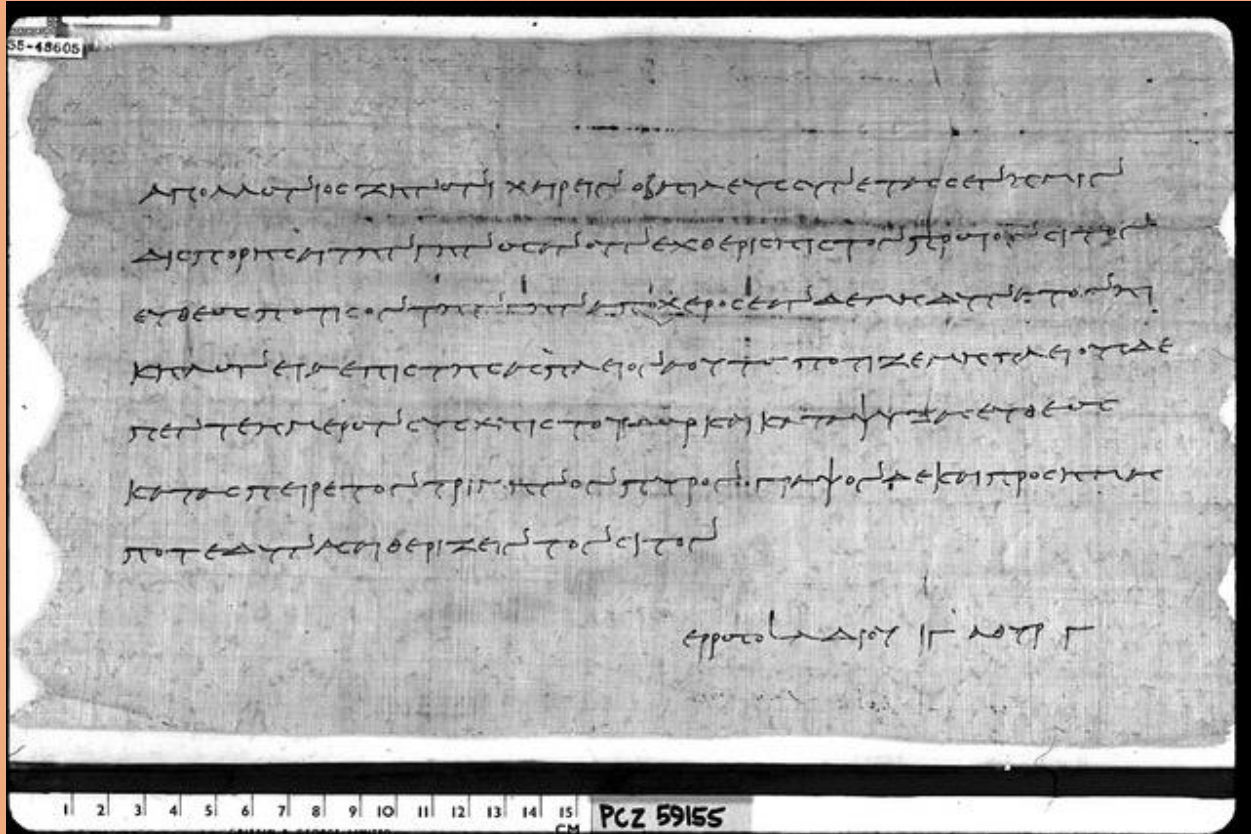 55-48605
απολλωνιος ζηνωνι χαιρειν ο βασιλευς συνετασσεν ημιν
δισπορησαι την γην ως αν ουν εχθερισηις τον πρωιον σιτον
ευθεως ποτισον την γην απο χερος εαν δε μη δυνατον ηι
κηλωνεια επιστησας πλειονα ουτω ποτιζε μη πλειους δε
πεντε ημερων συσχηις το υδωρ και καταψυξας ευθεως
κατασπειρε τον τριμηνον πυρον γραψον δε και προς ημας
ποτε δυνασαι θεριζειν τον σιτον
ερρωσο L λ διου ιγ αθυρ γ
1 2 3 4 5 6 7 8 9 10 11 12 13 14 15
CM
PCZ 59155